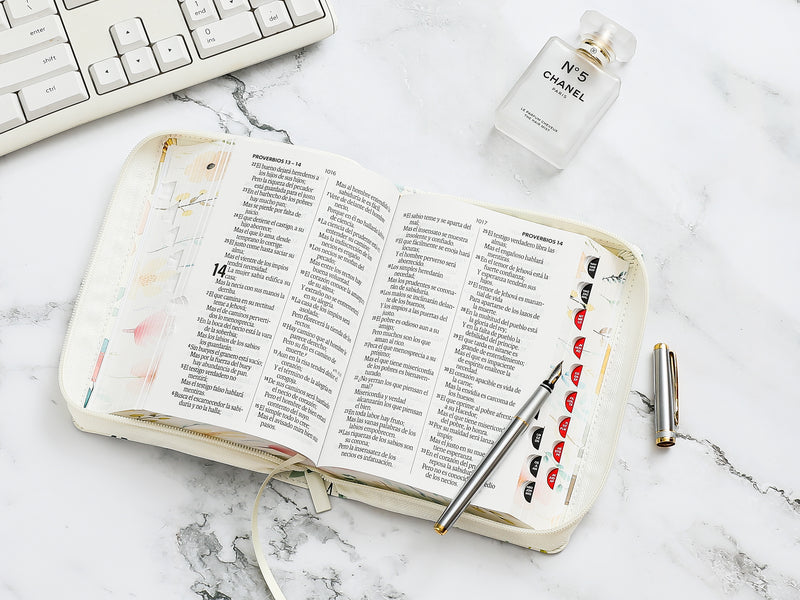 enter
shift
ctrl
end
0
ins
.
del
N°5
CHANEL
PARIS
LE PARFUM CHEVEUX
THE HAIR MIST
PROVERBIOS 13 - 14
1016
El bueno dejará herederos a
los hijos de sus hijos;
Pero la riqueza del pecador
está guardada para el justo.
En el barbecho de los pobres
hay mucho pan;
Mas se pierde por falta de
juicio.
El que detiene el castigo, a su
hijo aborrece;
Mas el que lo ama, desde
temprano lo corrige.
El justo come hasta saciar su
alma;
Mas el vientre de los impíos
tendrá necesidad.
14
La mujer sabia edifica su
casa;
Mas la necia con sus manos la
derriba.
El que camina en su rectitud
teme a Jehová;
Mas el de caminos perver-
sos lo menosprecia.
En la boca del necio está la vara
de la soberbia;
Mas los labios de los sabios los
guardarán.
Sin bueyes el granero está vacío;
Mas por la fuerza del buey
hay abundancia de pan.
El testigo verdadero no
mentirá;
Mas el testigo falso hablará
mentiras.
Busca el escarnecedor la sabi-
duría y no la halla;
Mas al hombre entendido la
sabiduría le es fácil.
Vete de delante del hombre
necio,
Porque en él no hallarás
La ciencia del prudente está en
entender su camino;
Mas la indiscreción de los
necios es engaño.
Los necios se mofan del
pecado;
Mas entre los rectos hay
buena voluntad.
El corazón conoce la amargura
de su alma;
Y extraño no se entremeterá
en su alegría.
La casa de los impíos será
asolada;
Pero florecerá la tienda de los
rectos.
Hay camino que al hombre le
parece derecho;
Pero su fin es camino de
muerte.
Aun en la risa tendrá dolor el
corazón;
Y el término de la alegría es
congoja.
De sus caminos será hastiado
el necio de corazón;
Pero el hombre de bien estará
contento del suyo.
El simple todo lo cree;
Mas el avisado mira bien sus
pasos.
1017
PROVERBIOS 14
El sabio teme y se aparta del
mal;
Mas el insensato se muestra
insolente y confiado.
El que fácilmente se enoja hará
locuras;
Y el hombre perverso será
aborrecido.
Los simples heredarán
necedad;
Mas los prudentes se corona-
rán de sabiduría.
Los malos se inclinarán delan-
te de los buenos,
Y los impíos a las puertas del
justo.
El pobre es odioso aun a su
amigo;
Pero muchos son los que
aman al rico.
Peca el que menosprecia a su
prójimo;
Mas el que tiene misericordia
de los pobres es bienaven-
turado.
¿No yerran los que piensan el
mal?
Misericordia y verdad
alcanzarán los que piensan
el bien.
En toda labor hay fruto;
Mas las vanas palabras de los
labios empobrecen.
Las riquezas de los sabios son
su corona;
Pero la insensatez de los
necios es infatuación.
El testigo verdadero libra las
almas;
Mas el engañoso hablará
mentiras.
En el temor de Jehová está la
fuerte confianza;
Y esperanza tendrán sus
hijos.
El temor de Jehová es manan-
tial de vida
Para apartarse de los lazos de
la muerte.
En la multitud del pueblo está
la gloria del rey;
Y en la falta de pueblo la
debilidad del príncipe.
El que tarda en airarse es
grande de entendimiento;
Mas el que es impaciente
de espíritu enaltece la
necedad.
El corazón apacible es vida de
la carne;
Mas la envidia es carcoma de